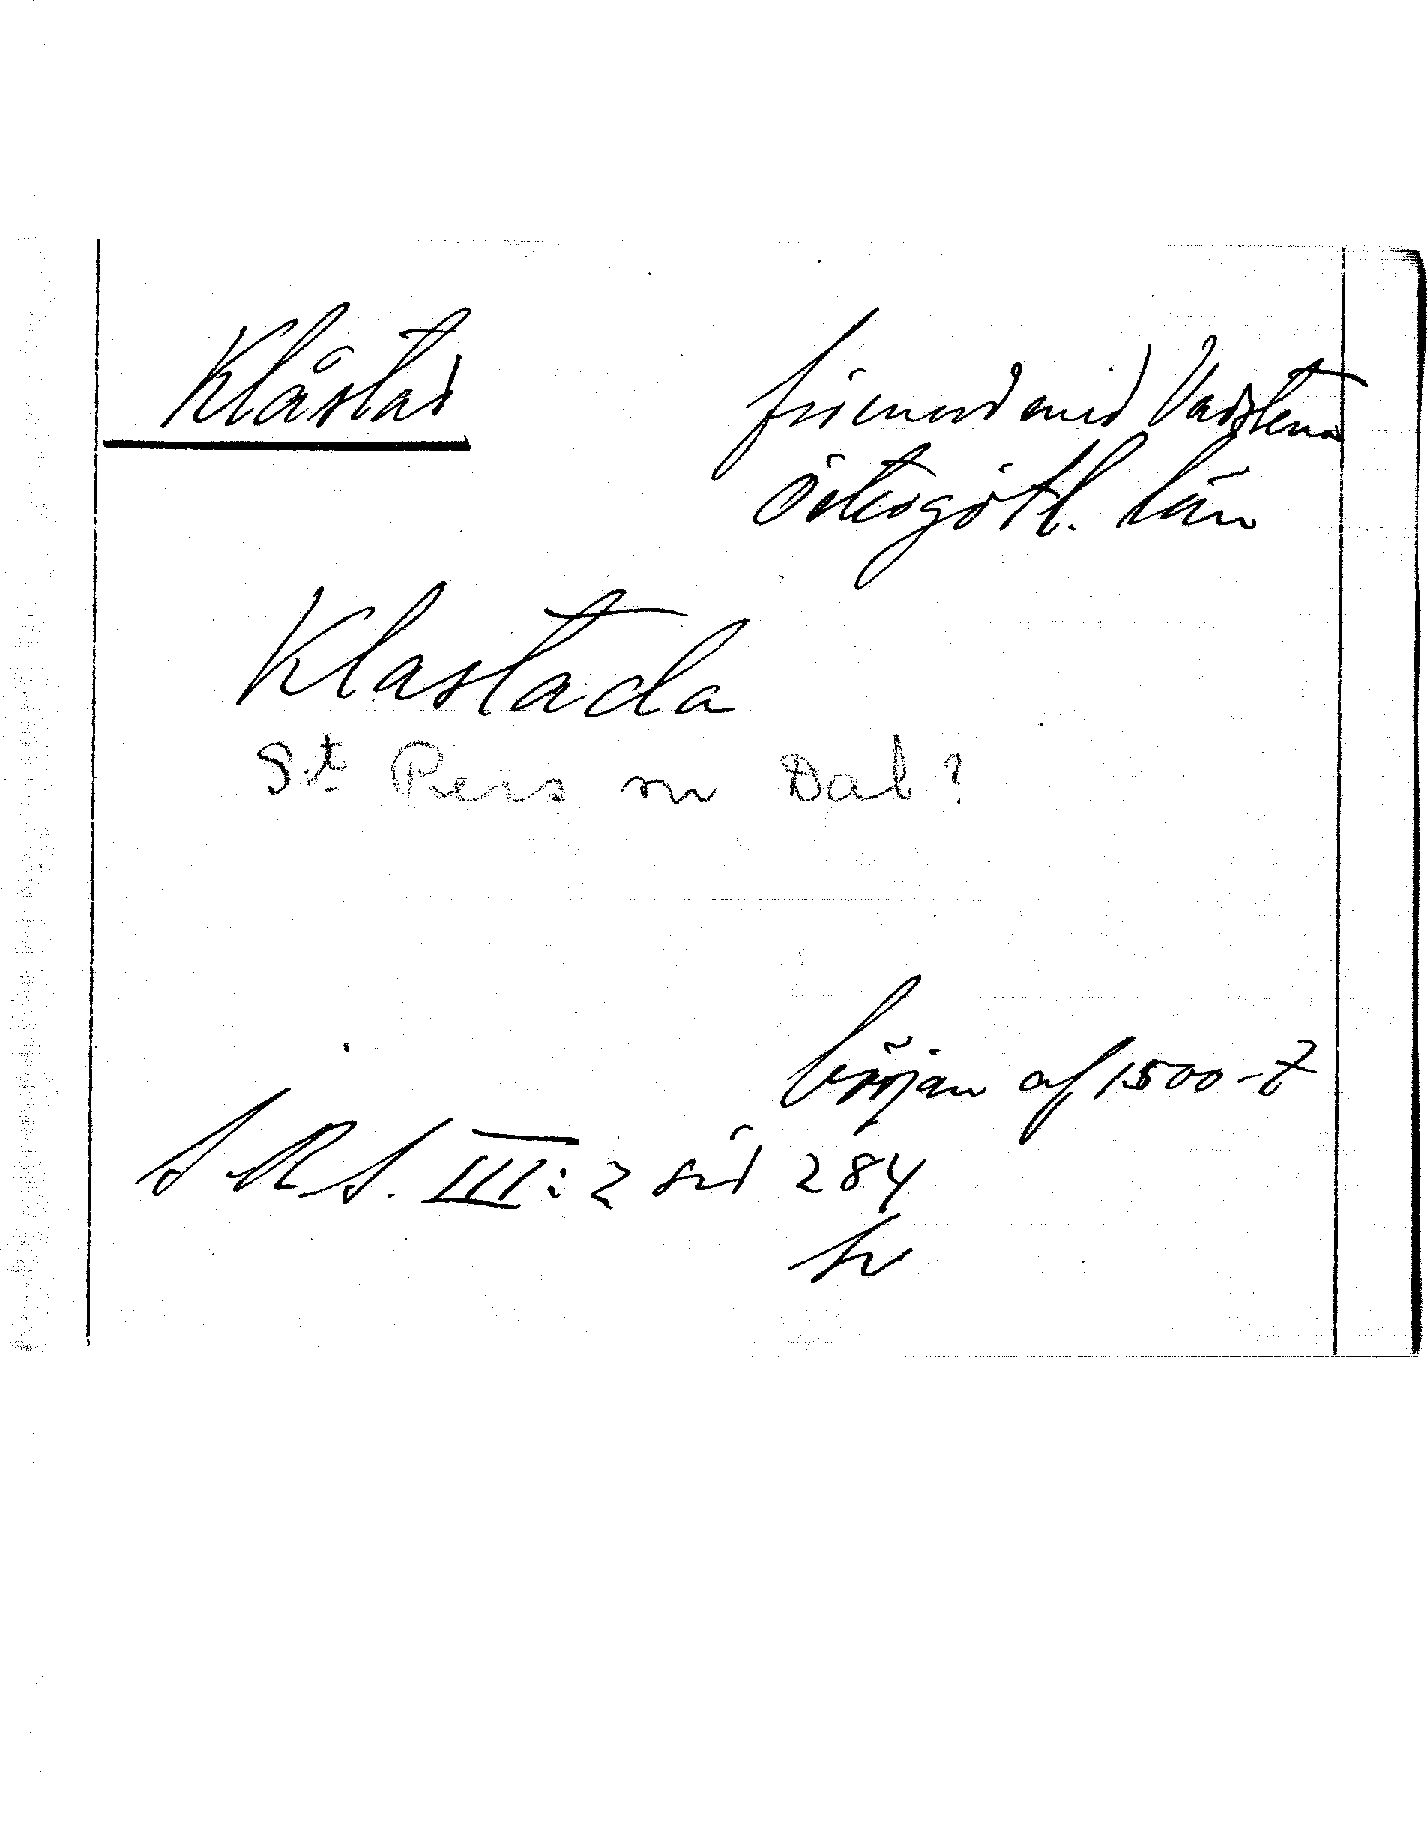 Klåstad
förenad med Vadstena
Östergötl. län
Klastada
St Pers sn Dal?
början af 1500-t
S R S. III: 2 sid 284